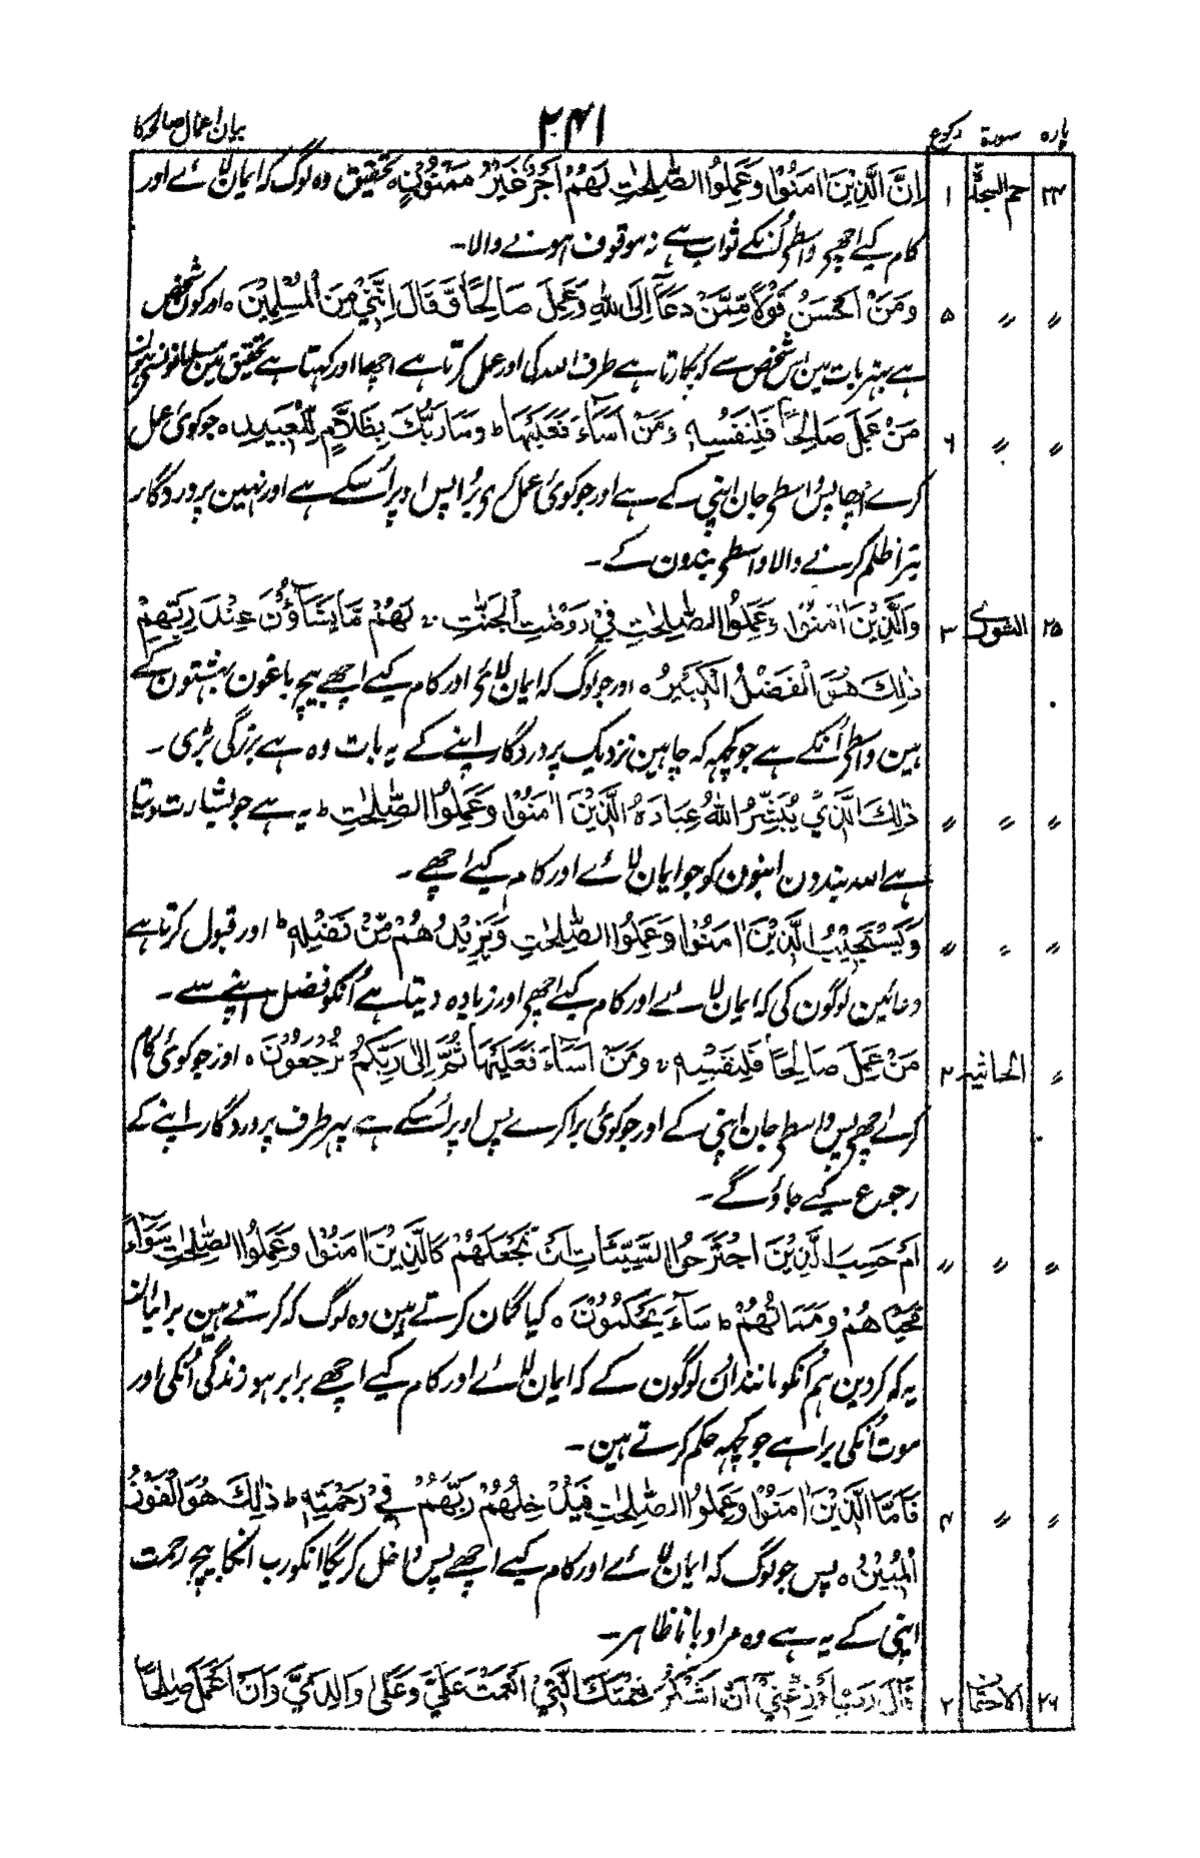 پارہ سورة رکوع ۲۴۱ بیان اعمال صالحہ کا
۲۴ حم السجدۃ ۱ اِنَّ الَّذِيْنَ اٰمَنُوْا وَعَمِلُوا الصّٰلِحٰتِ لَهُمْ اَجْرٌ غَيْرُ مَمْنُوْنٍ ہ تحقیق وہ لوگ کہ ایمان لائے اور
کام کیے اچھے واسطے اُنکے ثواب ہے نہ موقوف ہونے والا۔
〃 〃 ۵ وَمَنْ اَحْسَنُ قَوْلًا مِّمَّنْ دَعَآ اِلَى اللّٰهِ وَعَمِلَ صَالِحًا وَّقَالَ اِنَّنِيْ مِنَ الْمُسْلِمِيْنَ ہ اور کون شخص
ہے بہتر بات مین اس شخص سے کہ پکارتا ہے طرف اللہ کی اور عمل کرتا ہے اچھا اور کہتا ہے تحقیق مین مسلمانونسے ہون
〃 〃 ۶ مَنْ عَمِلَ صَالِحًا فَلِنَفْسِهٖ وَمَنْ اَسَآءَ فَعَلَيْهَا ط وَمَا رَبُّكَ بِظَلَّامٍ لِّلْعَبِيْدِ ہ جو کوئی عمل
کرے اچھا پس واسطے جان اپنی کے ہے اور جو کوئی عمل کرے بُرا پس اوپر اُسکے ہے اور نہین پروردگار
تیرا ظلم کرنے والا واسطے بندون کے۔
۲۵ الشوریٰ ۳ وَالَّذِيْنَ اٰمَنُوْا وَعَمِلُوا الصّٰلِحٰتِ فِيْ رَوْضٰتِ الْجَنّٰتِ لَهُمْ مَّا يَشَآؤُنَ عِنْدَ رَبِّهِمْ
ذٰلِكَ هُوَ الْفَضْلُ الْكَبِيْرُ ہ اور جو لوگ کہ ایمان لائے اور کام کیے اچھے بیچ باغون بہشتون کے
ہین واسطے اُنکے ہے جو کچھہ کہ چاہین نزدیک پروردگار اپنے کے یہ بات وہ ہے بزرگی بڑی۔
〃 〃 〃 ذٰلِكَ الَّذِيْ يُبَشِّرُ اللّٰهُ عِبَادَهُ الَّذِيْنَ اٰمَنُوْا وَعَمِلُوا الصّٰلِحٰتِ ط یہ ہے جو بشارت دیتا
ہے اللہ بندون اپنون کو جو ایمان لائے اور کام کیے اچھے۔
〃 〃 〃 وَيَسْتَجِيْبُ الَّذِيْنَ اٰمَنُوْا وَعَمِلُوا الصّٰلِحٰتِ وَيَزِيْدُهُمْ مِّنْ فَضْلِهٖ ط اور قبول کرتا ہے
دعائین لوگون کی کہ ایمان لائے اور کام کیے اچھے اور زیادہ دیتا ہے اُنکو فضل اپنے سے۔
〃 الجاثیہ ۲ مَنْ عَمِلَ صَالِحًا فَلِنَفْسِهٖ وَمَنْ اَسَآءَ فَعَلَيْهَا ثُمَّ اِلٰى رَبِّكُمْ تُرْجَعُوْنَ ہ اور جو کوئی کام
کرے اچھے پس واسطے جان اپنی کے اور جو کوئی برا کرے پس اوپر اُسکے ہے پہر طرف پروردگار اپنے کے
رجوع کیے جاؤگے۔
〃 〃 〃 اَمْ حَسِبَ الَّذِيْنَ اجْتَرَحُوا السَّيِّئَاتِ اَنْ نَّجْعَلَهُمْ كَالَّذِيْنَ اٰمَنُوْا وَعَمِلُوا الصّٰلِحٰتِ سَوَآءً
مَّحْيَاهُمْ وَمَمَاتُهُمْ ط سَآءَ مَا يَحْكُمُوْنَ ہ کیا گمان کرتے ہین وہ لوگ کہ کرتے ہین برائیان
یہ کہ کردین ہم اُنکو مانند ان لوگون کے کہ ایمان لائے اور کام کیے اچھے برابر ہو زندگی اُنکی اور
موت اُنکی برا ہے جو کچھہ حکم کرتے ہین۔
〃 〃 ۴ فَاَمَّا الَّذِيْنَ اٰمَنُوْا وَعَمِلُوا الصّٰلِحٰتِ فَيُدْخِلُهُمْ رَبُّهُمْ فِيْ رَحْمَتِهٖ ط ذٰلِكَ هُوَ الْفَوْزُ
الْمُبِيْنُ ہ پس جو لوگ کہ ایمان لائے اور کام کیے اچھے پس داخل کریگا انکو رب انکا بیچ رحمت
اپنی کے یہ ہے وہ مراد پانا ظاہر۔
۲۶ الاحقاف ۲ قَالَ رَبِّ اَوْزِعْنِيْٓ اَنْ اَشْكُرَ نِعْمَتَكَ الَّتِيْٓ اَنْعَمْتَ عَلَيَّ وَعَلٰى وَالِدَيَّ وَاَنْ اَعْمَلَ صَالِحًا